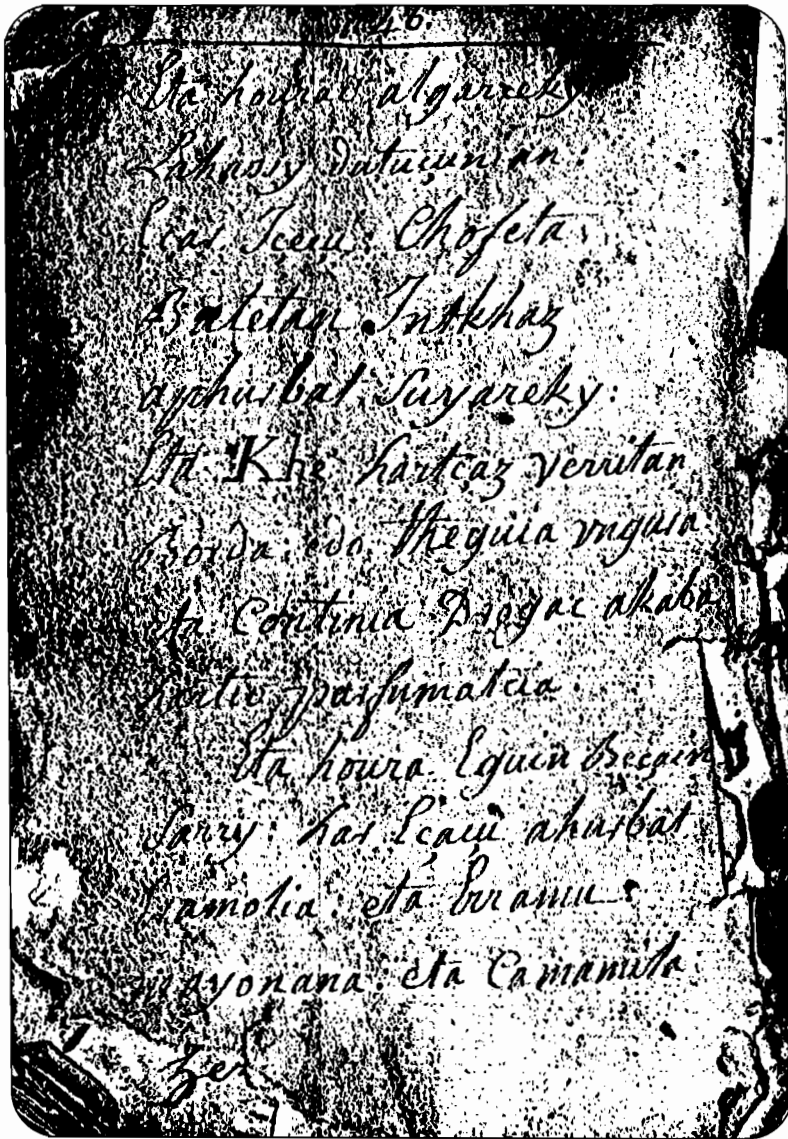 46.
Eta hourac algarreky
Lahassy datuçunian:
har Içaçu: Chofeta
Batetan Inkhaz
aphurbat: suyareky:
Eta Khe hartçaz verritan
Borda: edo: theguia ungura
eta Continia Drogac akaba
artio parfumatcia
Eta houra: Eguin Beçain
Sarry: har Eçaçu ahurbat
tramolia: eta Erramu:
mayonana: eta Camamila